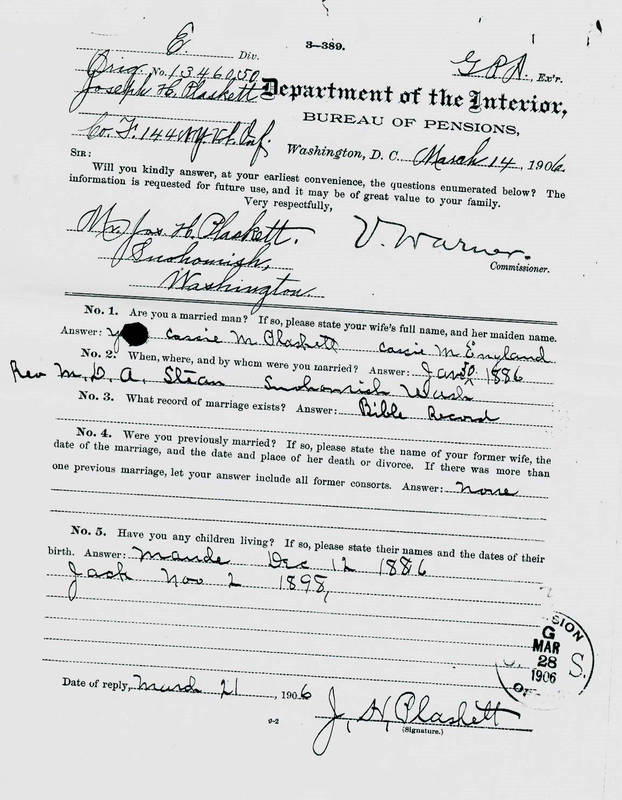 E. Div.
3—389.
G R A, Ex'r.
Orig. No. 1346050
Joseph H. Plaskett
Department of the Interior,
BUREAU OF PENSIONS,
Co. F. 144 N.Y. Vt. Inf.
Washington, D. C. March 14, 1906.
SIR:
Will you kindly answer, at your earliest convenience, the questions enumerated below? The
information is requested for future use, and it may be of great value to your family.
Very respectfully,
Mr. Jos. H. Plaskett.
V. Warner.
Snohomish,
Commissioner.
Washington
No. 1. Are you a married man? If so, please state your wife's full name, and her maiden name.
Answer: Cassie M Plaskett Cassie M. England
No. 2. When, where, and by whom were you married? Answer: Jan 30. 1886
Rev M. D. A. Snohomish Wash
No. 3. What record of marriage exists? Answer: Bible Record
No. 4. Were you previously married? If so, please state the name of your former wife, the
date of the marriage, and the date and place of her death or divorce. If there was more than
one previous marriage, let your answer include all former consorts. Answer: None
No. 5. Have you any children living? If so, please state their names and the dates of their
birth. Answer: Maude Dec 12 1886
Jack Nov 2 1898,
SION
G
MAR
28
1906
S.
Date of reply, March 21, 1906
6-2
J, H, Plaskett
(Signature.)